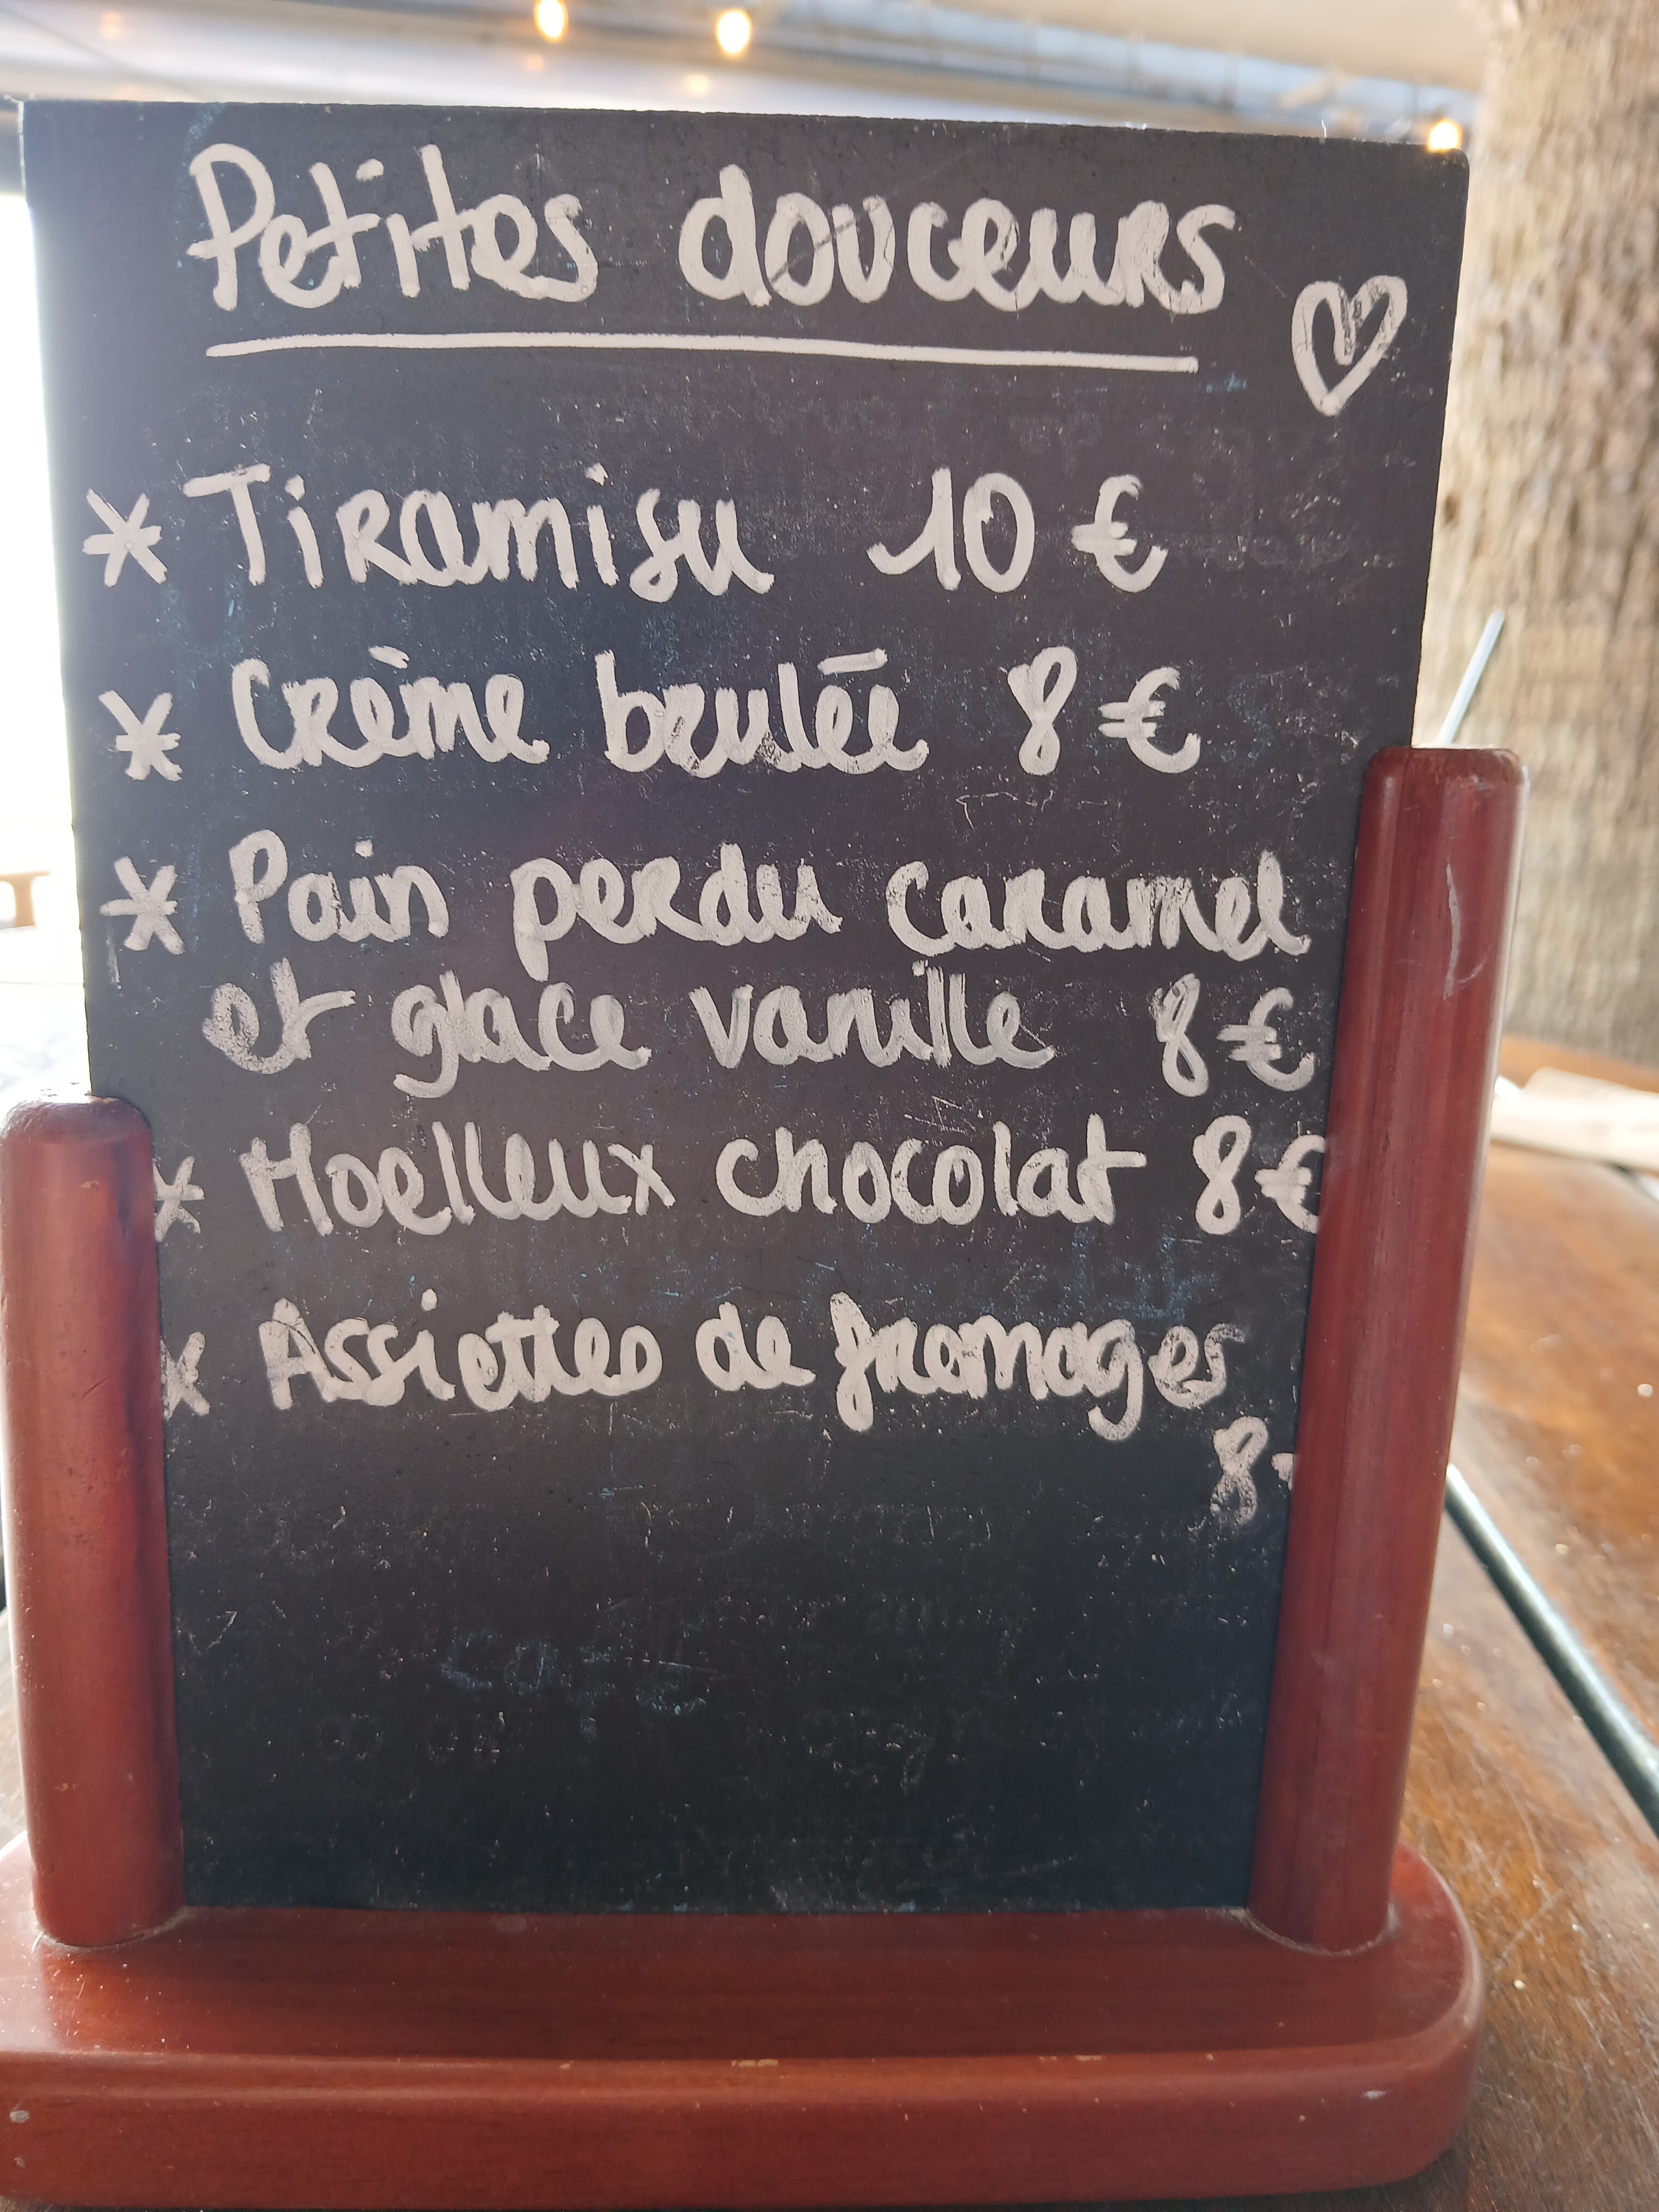 Petites douceurs
* Tiramisu 10 €
* Crème brulée 8 €
* Pain perdu caramel
et glace vanille 8 €
* Moelleux chocolat 8 €
* Assiettes de fromages
8